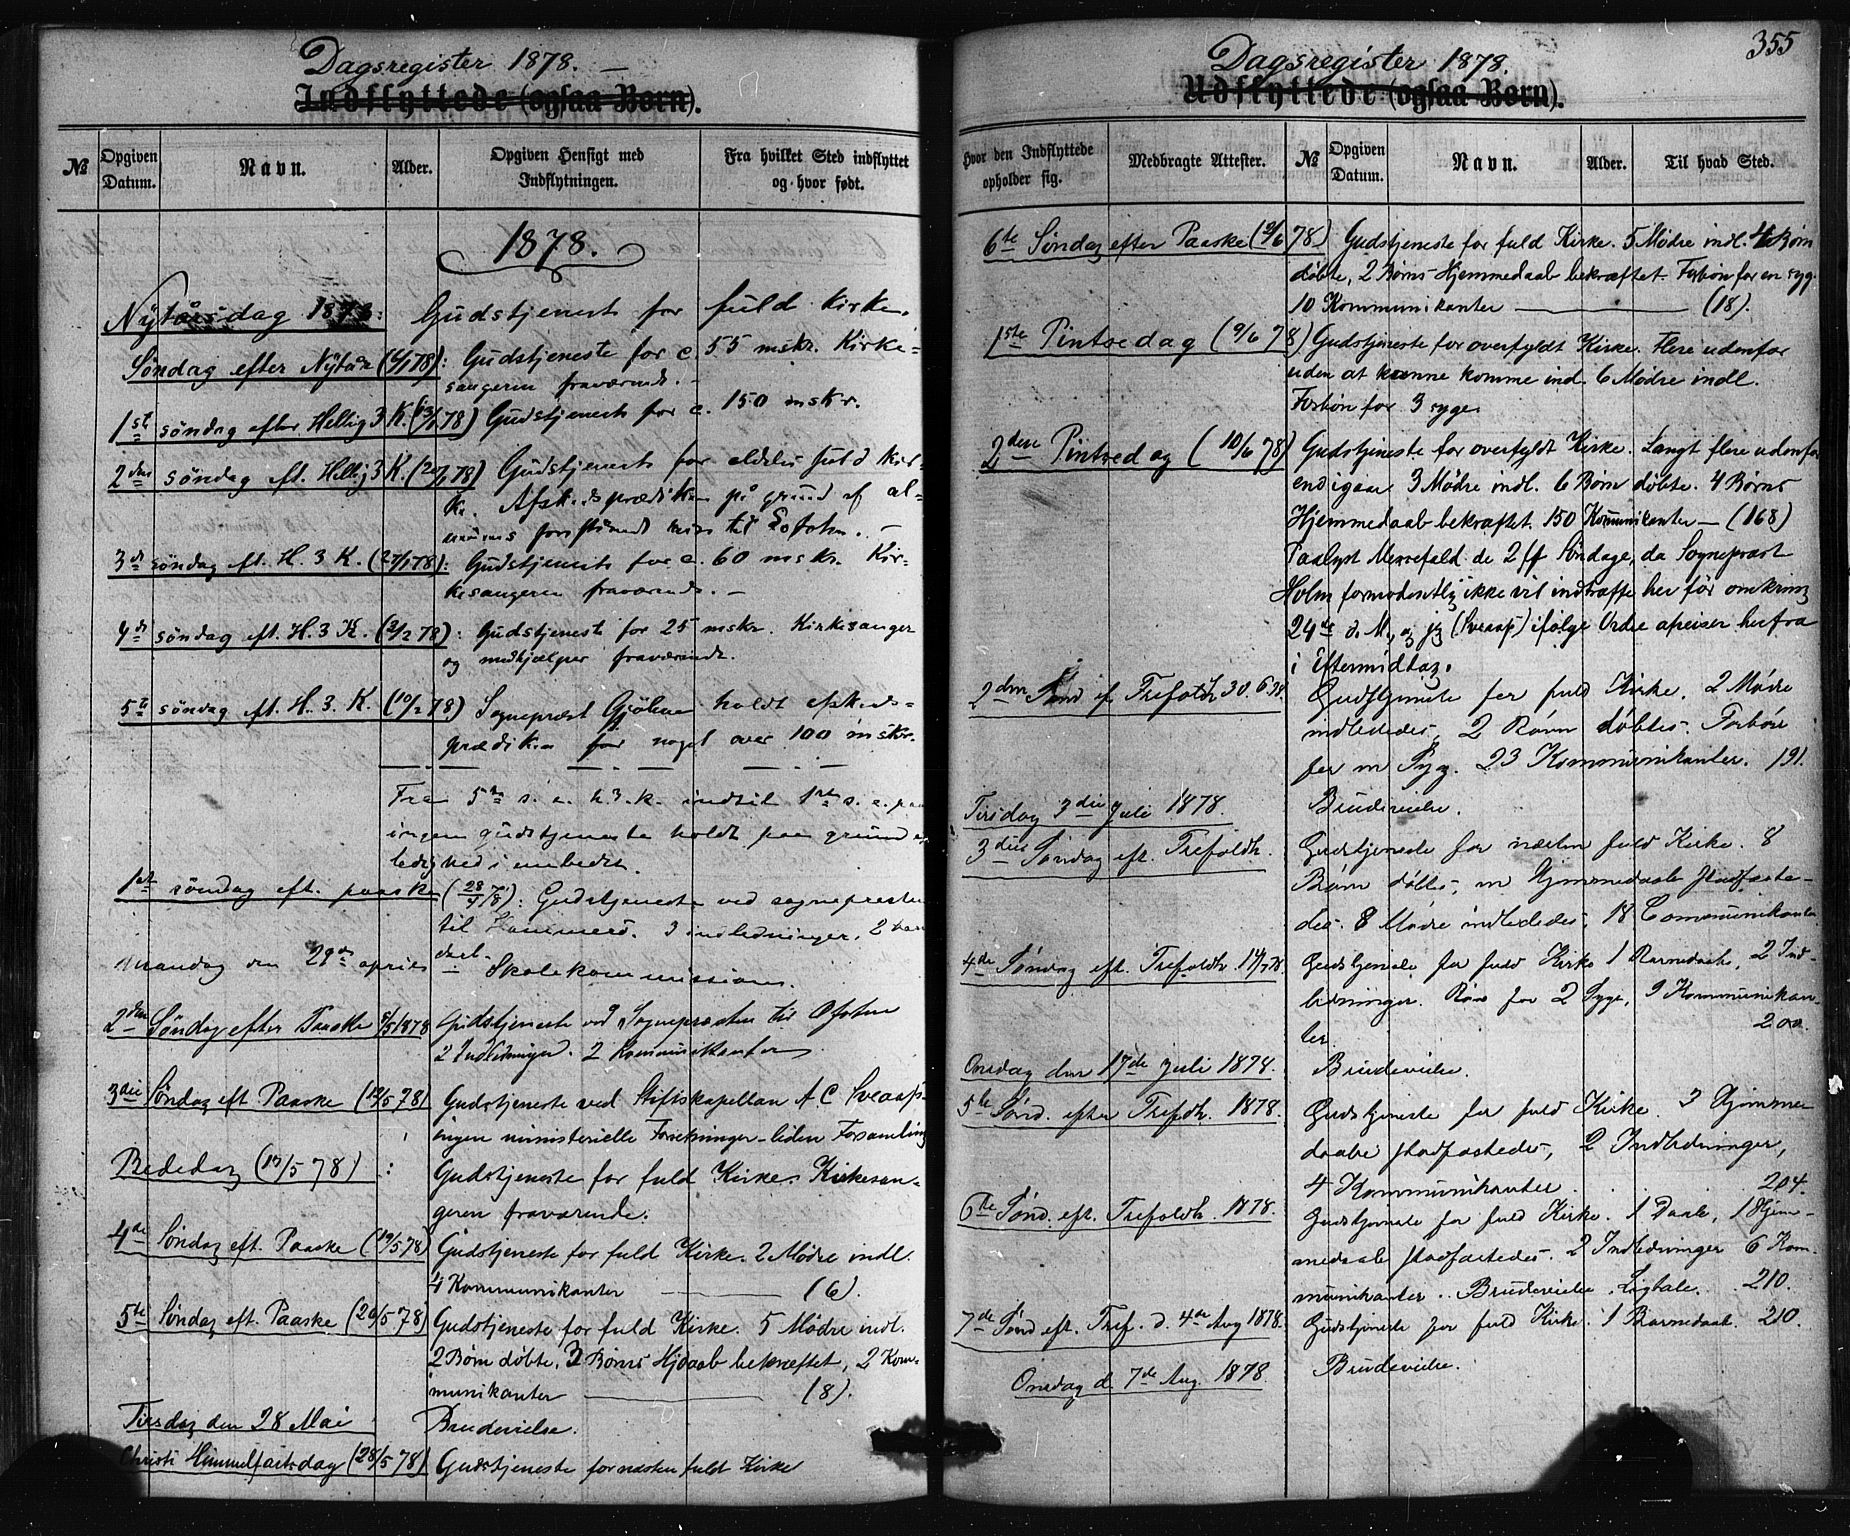 Dagsregister 1878. —
Indflyttede (ogsaa Børn).
№
Opgiven Datum.
Navn.
Alder.
Opgiven Hensigt med Indflytningen.
Fra hvilket Sted indflyttet og hvor født.
1878.
Nytårsdag 1878: Gudstjeneste for fuld Kirke.
Søndag efter Nytår (6/1 78): Gudstjeneste for c. 55 mskr. Kirke=
sangeren fraværende. —
1st søndag efter Hellig 3 K. (13/1 78) Gudstjeneste for c. 150 mskr.
2den søndag eft. Hellig 3 K. (20/1 78) Gudstjeneste for aldeles fuld Kir-
ke. Afskedsprædiken på grund af al-
muens forestående reise til Lofoten. —
3die søndag eft. H. 3 K. (27/1 78): Gudstjeneste for c. 60 mskr. Kir-
kesangeren fraværende. —
4de søndag eft. H. 3 K. (3/2 78): Gudstjeneste for 25 mskr. Kirkesanger
og medhjælper fraværende.
5te søndag eft. H. 3. K. (10/2 78) Sogneprest holdt afskeds-
prædiken for noget over 100 mskr.
Fra 5te s. e. h. 3. k. indtil 1ste s. e. paa
ingen gudstjeneste holdt paa grund af
ledighed i embedet.
1ste søndag eft. paaske (28/4 78): Gudstjeneste ved sognepresten
til Hammerö. 3 indledninger, 2 barne
daab.
mandag den 29de april Skolekommission.
2den Søndag efter Paaske 5/5 1878 Gudstjeneste ved Sognepræsten til Ofoten
2 Indledninger. 2 Kommunikanter
3die Søndag eft. Paaske (12/5 78) Gudstjeneste ved Stiftskapellan A C Sveaas-
ingen ministerielle Forretninger - liden Forsamling
Bededag (17/5 78) : Gudstjeneste for fuld Kirke. Kirkesan-
geren fraværende.
4de Søndag eft. Paaske (19/5 78) Gudstjeneste for fuld Kirke. 2 Mødre indl.
4 Kommunikanter — (6)
5te Søndag eft. Paaske (26/5 78) Gudstjeneste for fuld Kirke. 5 Mødre indl.
2 Børn døbte, 3 Børns Hjdaab bekræftet, 2 Kom-
munikanter — (8).
Tirsdag den 28 Mai Brudevielse.
Christi Himmelfartsdag (28/5 78) Gudstjeneste for næsten fuld Kirke
355
Dagsregister 1878.
Udflyttede (ogsaa Børn).
Hvor den Indflyttede opholder sig.
Medbragte Attester.
№
Opgiven Datum.
Navn.
Alder.
Til hvad Sted.
6te Søndag efter Paaske (2/6 78) Gudstjeneste for fuld Kirke. 5 Mødre indl. 4 Børn
døbte, 2 Børns Hjemmedaab bekræftet. Forbøn for en syg.
10 Kommunikanter — (18).
1ste Pintsedag (9/6 78) Gudstjeneste for overfyldt Kirke. Flere udenfor
uden at kunne komme ind. 6 Mødre indl.
Forbøn for 3 syge.
2den Pintsedag (10/6 78) Gudstjeneste for overfyldt Kirke. Langt flere udenfor
end igaar 3 Mødre indl. 6 Børn døbte. 4 Børns
Hjemmedaab bekræftet. 150 Kommunikanter — (168)
Paalyst Messefald de 2 ff Søndage, da Sognepræst
Holm formodentlig ikke vil indtræffe her før omkring
24de d. M. og jeg (Sveaas) ifølge Ordre afreiser herfra
i Eftermiddag.
2den Sønd ef. Trefoldh 30. 6. 78. Gudstjeneste for fuld Kirke. 2 Mødre
indlededes, 2 Børn døbtes. Forbøn
for en Syg. 23 Kommunikanter. 191.
Tirsdag 3die Juli 1878. Brudevielse.
3die Søndag eft. Trefoldh. Gudstjeneste for næsten fuld Kirke. 8
Børn døbtes, en Hjemmedaab stadfæste-
des. 8 Mødre indlededes, 18 Communikanter
4de Søndag eft. Trefoldh. 14/7 78 Gudstjeneste for fuld Kirke 1 Barnedaab, 2 Ind-
ledninger. Bøn for 2 Syge, 9 Kommunikan-
ter. 200.
Onsdag den 17de Juli 1878. Brudevielse.
5te Sønd. efter Trefoldh. 1878. Gudstjeneste for fuld Kirke. 2 Hjemme
daabe stadfæstedes, 2 Indledninger,
4 Kommunikanter. 204.
6te Sønd. eft. Trefoldh. 1878. Gudstjeneste for fuld Kirke. 1 Daab, 1 Hjem-
medaab stadfæstedes. 2 Indledninger 6 Kom-
munikanter. Brudevielse. Ligtale. 210.
7de Sønd eft. Tref. d. 4de Aug 1878. Gudstjeneste for fuld Kirke. 1 Barnedaab. 210.
Onsdag d. 7de Aug. 1878 Brudevielse.